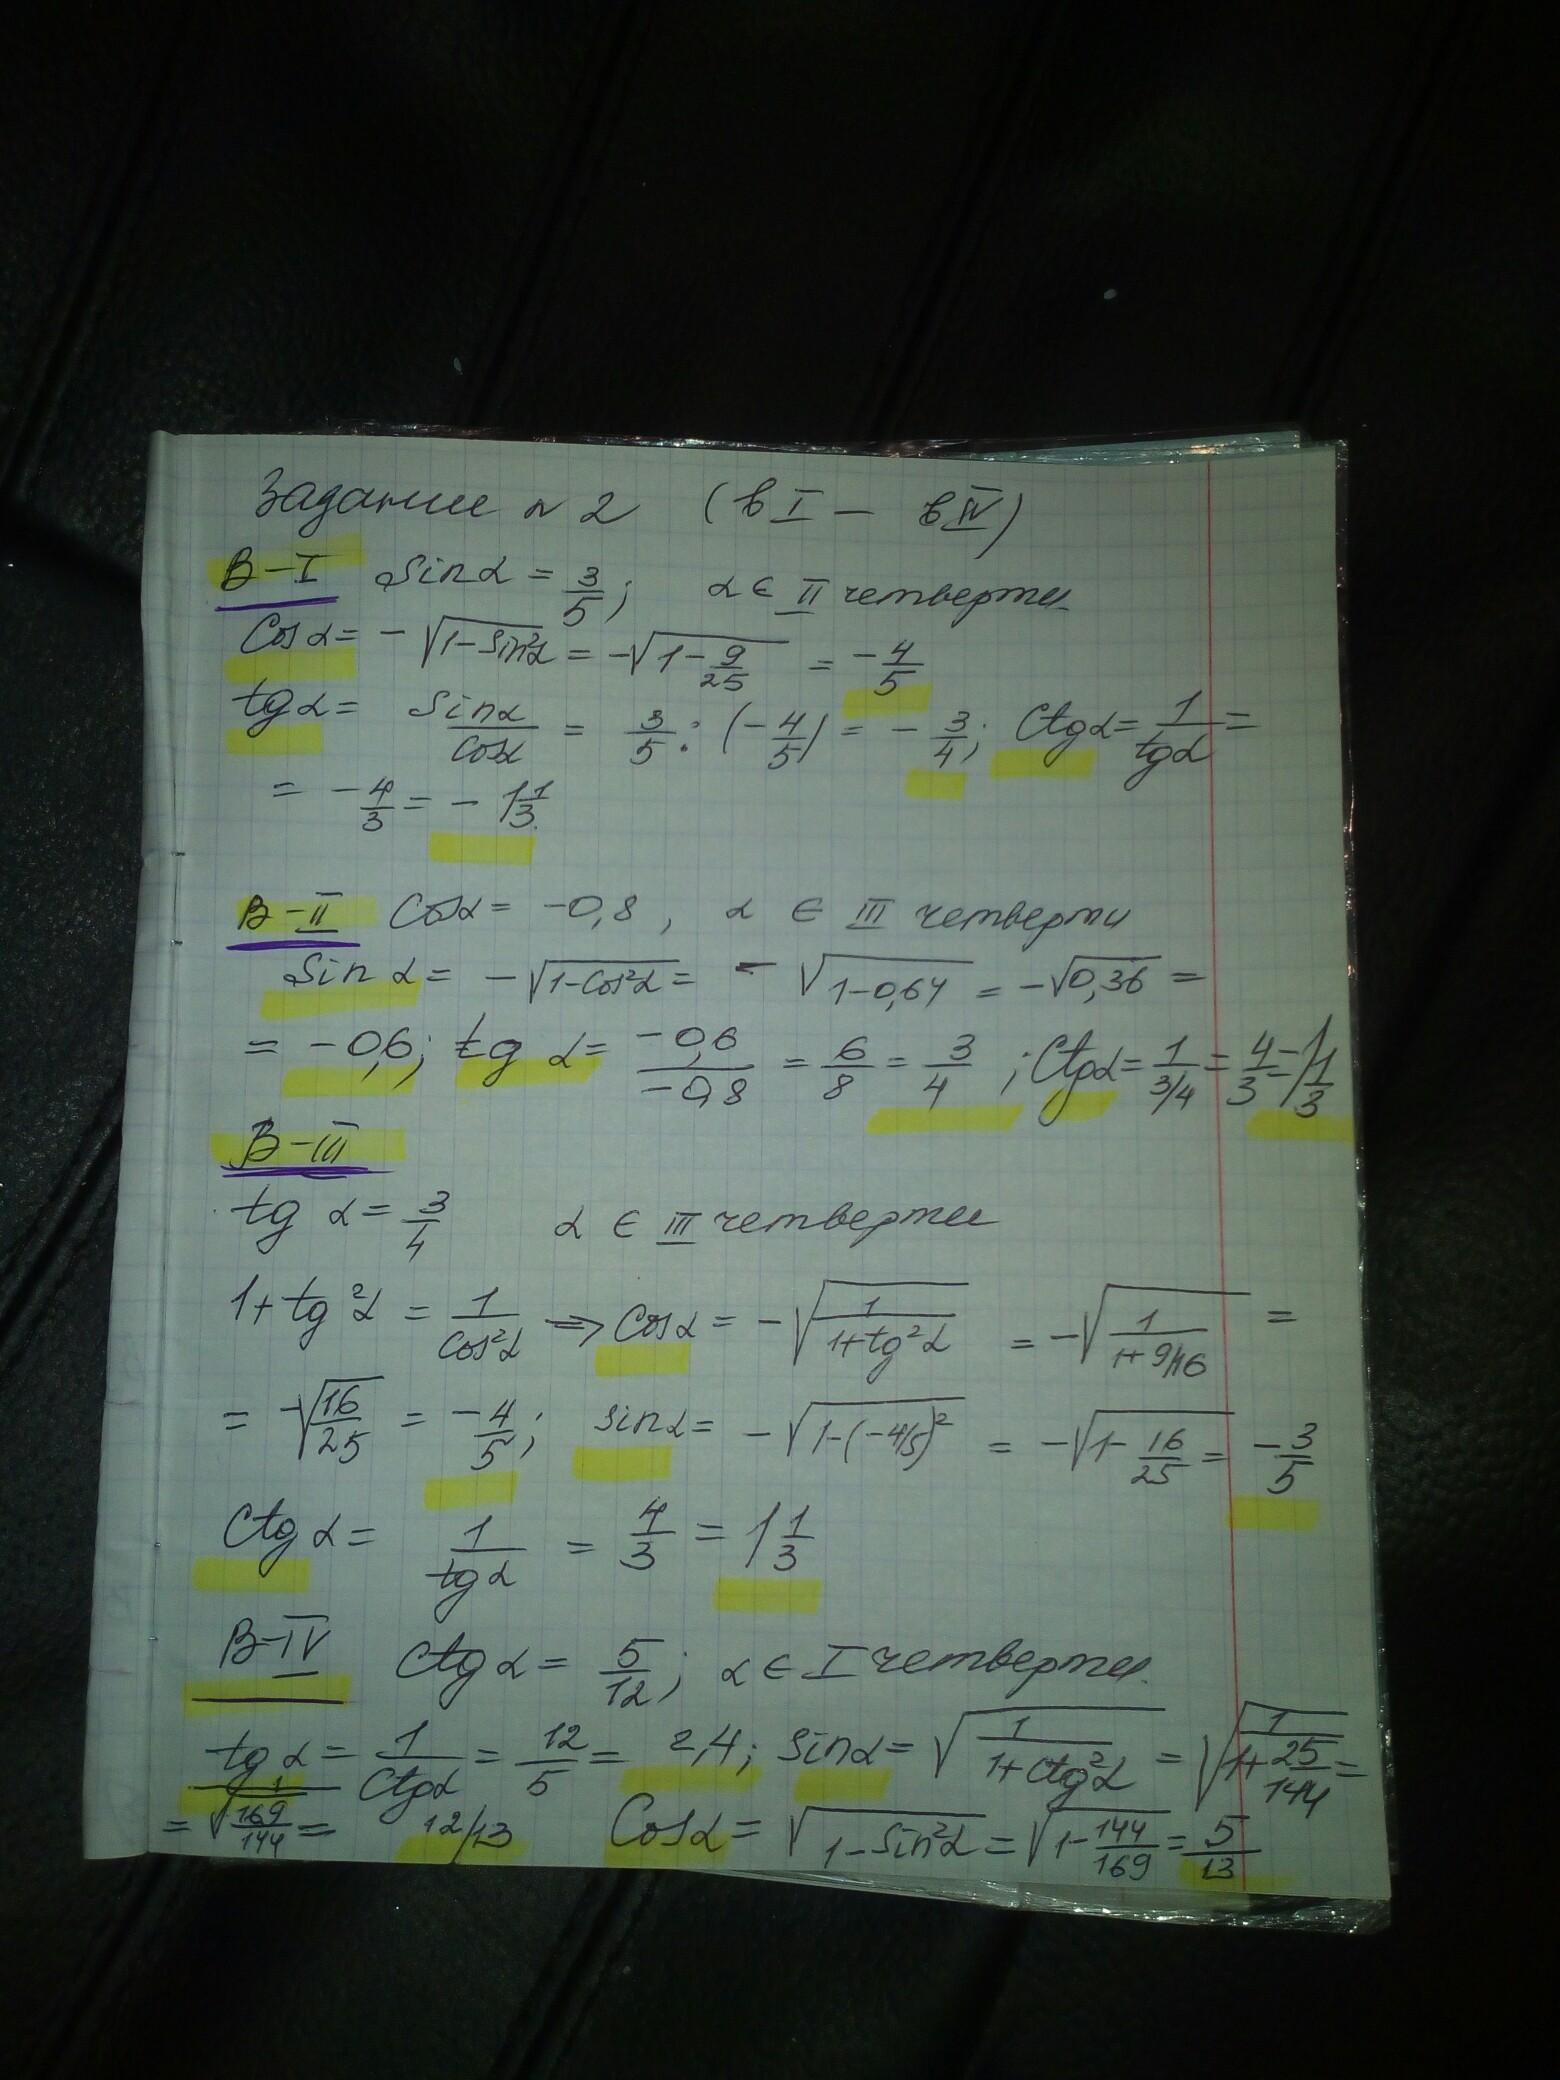 Задание № 2 (вI – вIV)
В–I Sinα = 3/5; α ∈ II четверти.
Cosα = –√(1–Sin²α) = –√(1–9/25) = –4/5
tgα = Sinα/Cosα = 3/5 : (–4/5) = –3/4; Ctgα = 1/tgα =
= –4/3 = –1 1/3.
В–II Cosα = –0,8, α ∈ III четверти
Sin α = –√(1–Cos²α) = –√(1–0,64) = –√0,36 =
= –0,6; tg α = –0,6/–0,8 = 6/8 = 3/4; Ctgα = 1/(3/4) = 4/3 = 1 1/3
В–III
tg α = 3/4 α ∈ III четверти
1+tg²α = 1/Cos²α => Cosα = –√(1/(1+tg²α)) = –√(1/(1+9/16)) =
= –√(16/25) = –4/5; sinα = –√(1–(–4/5)²) = –√(1–16/25) = –3/5
Ctg α = 1/tgα = 4/3 = 1 1/3
В–IV Ctg α = 5/12; α ∈ I четверти.
tgα = 1/Ctgα = 12/5 = 2,4; Sinα = √(1/(1+Ctg²α)) = √(1/(1+25/144)) =
= √(1/(169/144)) = 12/13 Cosα = √(1–Sin²α) = √(1–144/169) = 5/13